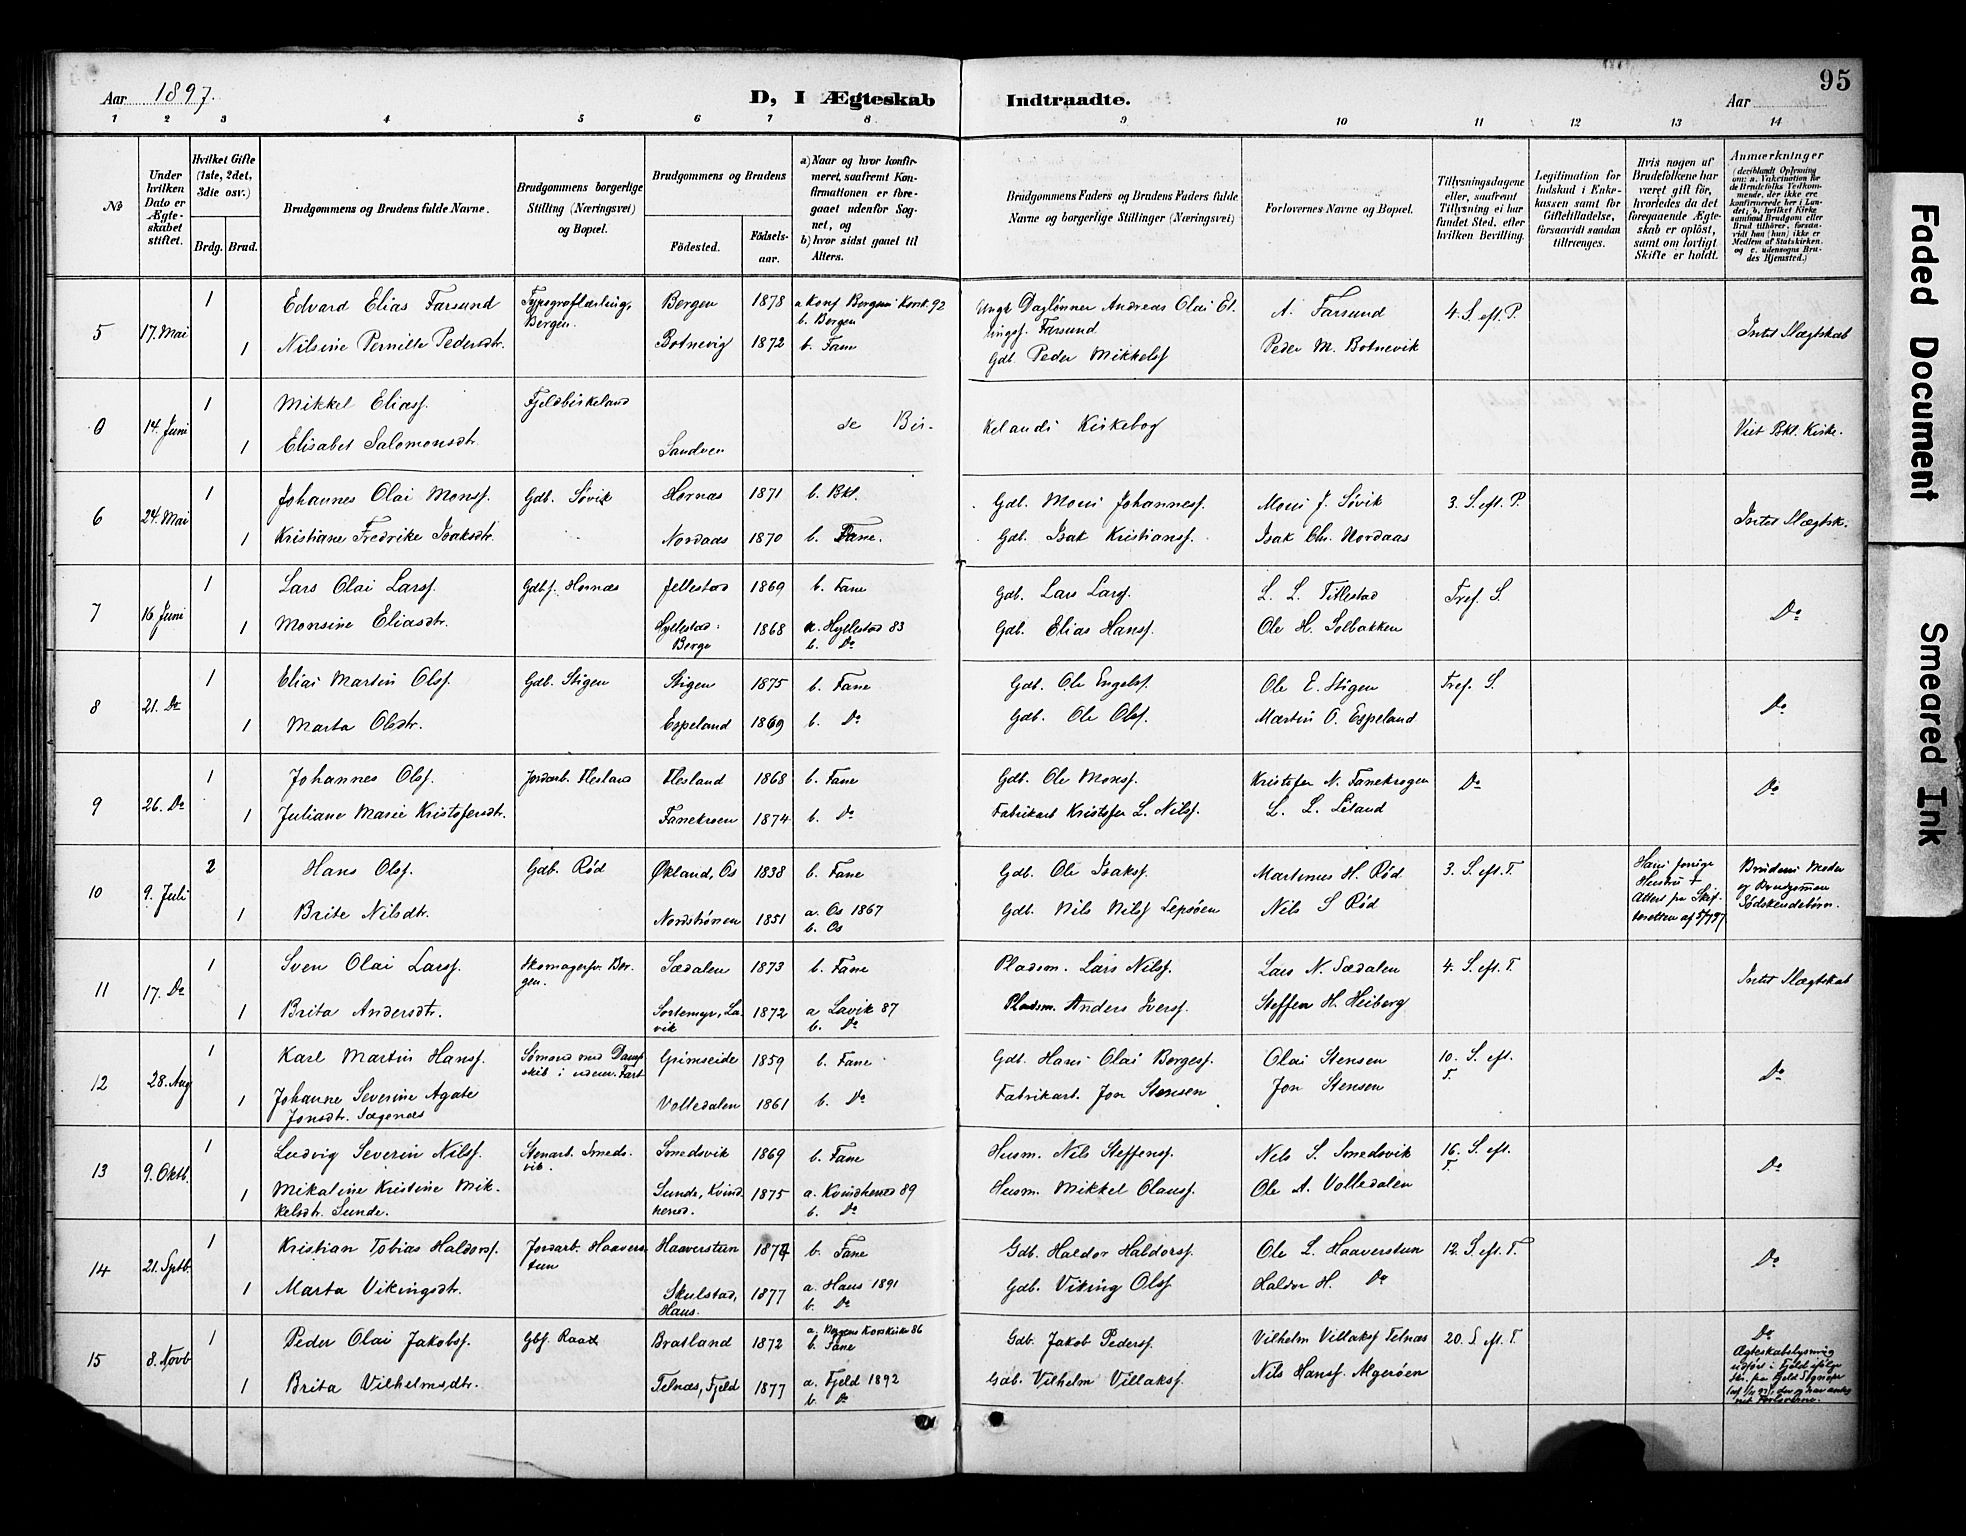 95
Aar 1897. D, I Ægteskab Indtraadte. Aar
1 2 3 4 5 6 7 8 9 10 11 12 13 14
No
Under hvilken Dato er Ægteskabet stiftet.
Hvilket Gifte (1ste, 2det, 3die osv.)
Brdg. Brud.
Brudgommens og Brudens fulde Navne.
Brudgommens borgerlige Stilling (Næringsvei) og Bopæl.
Brudgommens og Brudens
Födested. Födselsaar.
a) Naar og hvor konfirmeret, saafremt Konfirmationen er foregaaet udenfor Sognet, og
b) hvor sidst gaaet til Alters.
Brudgommens Faders og Brudens Faders fulde Navne og borgerlige Stillinger (Næringsvei)
Forlovernes Navne og Bopæl.
Tillysningsdagene eller, saafremt Tillysning ei har fundet Sted, efter hvilken Bevilling.
Legitimation for Indskud i Enkekassen samt for Giftetilladelse, forsaavidt saadan tiltrænges.
Hvis nogen af Brudefolkene har været gift för, hvorledes da det foregaaende Ægteskab er oplöst, samt om lovligt Skifte er holdt.
Anmærkninger
(deriblandt Oplysning om: a. Vaksination for de Brudefolks Vedkommende, der ikke ere konfirmerede her i Landet; b. hvilket Kirkesamfund Brudgom eller Brud tilhörer, forsaavidt han (hun) ikke er Medlem af Statskirken, og c. udensogns Brudes Hjemsted.)
5 17. Mai 1 Edvard Elias Farsund Typograflærling, Bergen. Bergen 1878 a Konf Bergens Korsk. 92 b. Bergen Daglønner Andreas Olai El- lingsf. Farsund A. Farsund 4. S. eft. P. Intet Slægtskab
1 Nilsine Pernille Pedersdtr. Botnevig 1872 b. Fane Gdb. Peder Mikkelsf Peder M. Botnevik
0 14. Juni 1 Mikkel Eliasf. Fjeldbirkeland se Bir- kelands Kirkebog Viet Bkl. Kirke.
1 Elisabet Salomonsdtr. Sandven
6 24. Mai 1 Johannes Olai Monsf. Gdb. Søvik Hornæs 1871 b. Bkl. Gdb. Mons Johannesf. Mons J. Søvik 3. S. eft. P. Intet Slægtsk.
1 Kristiane Fredrike Isaksdtr. Nordaas 1870 b. Fane. Gdb. Isak Kristiansf. Isak Chr. Nordaas
7 16 Juni 1 Lars Olai Larsf. Gdbsf. Hornæs Jellestad 1869 b. Fane Gdb. Lars Larsf. L. L. Titlestad Tref. S. Do
1 Monsine Eliasdtr. Hyllestad Berge 1868 a. Hyllestad 83 b. Do Gdb. Elias Hansf. Ole H. Solbakken
8 21. Do 1 Elias Martin Olsf. Gdb. Stigen Stigen 1875 b. Fane Gdb. Ole Engelsf. Ole E. Stigen Tref. S. Do
1 Marta Olsdtr. Espeland 1869 b. Do Gdb. Ole Olsf. Martin O. Espeland
9 26. Do 1 Johannes Olsf. Jordarb. Flesland Flesland 1868 b. Fane Gdb. Ole Monsf. Kristofer N. Fanekrogen Do Do
1 Juliane Marie Kristofersdtr. Fanekroen 1874 b. Do Fabrikarb Kristofer L. Nilsf. L. L. Liland
10 9. Juli 2 Hans Olsf. Gdb. Rød Økland, Os 1838 b. Fane Gdb. Ole Isaksf. Martinus H. Rød 3. S. eft. T. Hans forrige Hustru † Attest fra Skifteretten af 5/7 97 Brudens Moder og Brudgommen Södskendebörn.
1 Brite Nilsdtr. Nordstrønen 1851 a. Os 1867 b. Os Gdb. Nils Nilsf Lepsøen Nils S Rød
11 17. Do 1 Sven Olai Larsf. Skomagersv. Bergen. Sædalen 1873 b. Fane Pladsm. Lars Nilsf. Lars N. Sædalen 4. S. eft. T. Intet Slægtskab
1 Brita Andersdtr. Sortemyr, Lavik 1872 a Lavik 87 b. Do Pladsm. Anders Iversf. Steffen H. Heiberg
12 28. Aug 1 Karl Martin Hansf. Sømand med Dampskib i uden. Fart Grimseide 1859 b. Fane Gdb. Hans Olai Børgesf. Olai Stensen 10. S. eft. T. Do
1 Johanne Severine Agate Jonsdtr. Sagenæs Volledalen 1861 b. Do Fabrikarb. Jon Stensen Jon Stensen
13 9. Oktb. 1 Ludvig Severin Nilsf. Stenarb. Smedsvik. Smedsvik 1869 b. Fane Husm. Nils Steffensf. Nils S. Smedsvik 16. S. eft. T. Do
1 Mikaline Kristine Mikkelsdtr. Sunde. Sunde, Kvindherred. 1875 a. Kvindherred 89 b. Do Husm. Mikkel Olausf. Ole A. Volledalen
14 21. Septb. 1 Kristian Tobias Haldorsf. Jordarb. Haaversteen Haaversteen 1874 b. Fane Gdb. Haldor Haldorsf. Ole L. Haaversteen 12. S. eft. T. Do
1 Marta Vikingsdtr. Skulstad, Haus. 1877 a. Haus 1891 b. Do Gdb. Viking Olsf. Haldor H. Do
15 8. Novb 1 Peder Olai Jakobsf. Gbsf. Raa Bratland 1872 a. Bergens Korskirke 86 b. Fane Gdb. Jakob Pedersf. Vilhelm Villaksf Telnæs 20. S. eft. T. Do Ægteskabslysning udført i Fjeld
1 Brita Vilhelmsdtr. Telnæs, Fjeld 1877 a. Fjeld 1892 b. Do Gdb. Vilhelm Villaksf. Nils Hansf. Algerøen
Faded Document
Smeared Ink